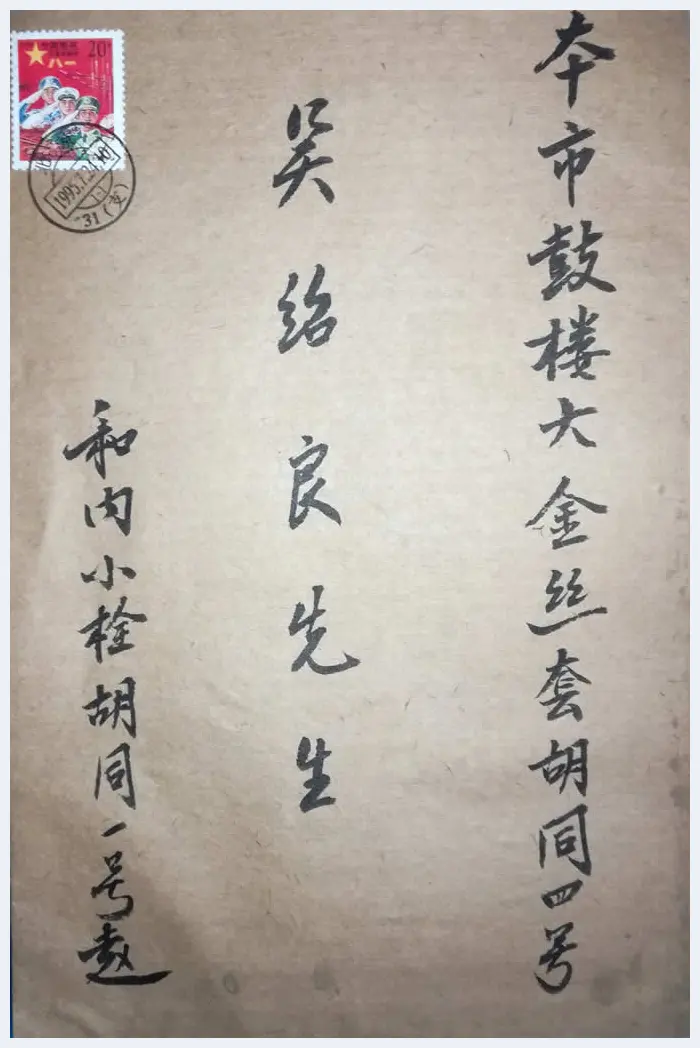 本市鼓楼大金丝套胡同四号
吴绍良先生
和内小栓胡同一号赵
20
八一
1995.7.21.10
31(支)